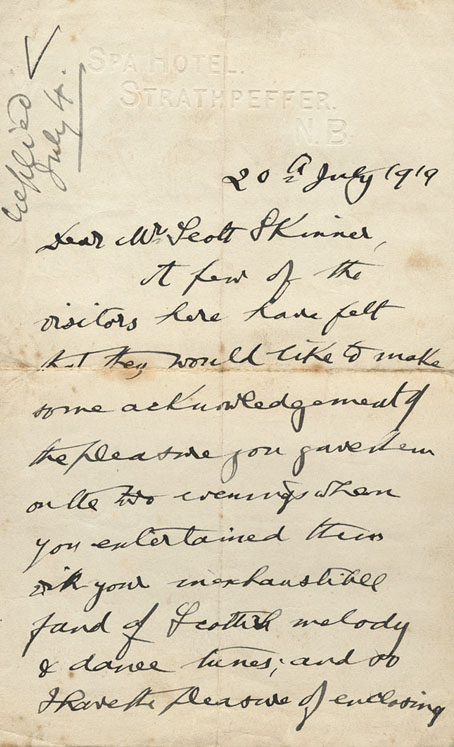 replied
July 4.
SPA HOTEL.
STRATHPEFFER.
N.B.
20th July 1919
Dear Mr Scott Skinner,
A few of the
visitors here have felt
that they would like to make
some acknowledgement of
the pleasure you gave them
on the two evenings when
you entertained them
with your inexhaustible
fund of Scottish melody
& dance tunes; and so
I have the pleasure of enclosing